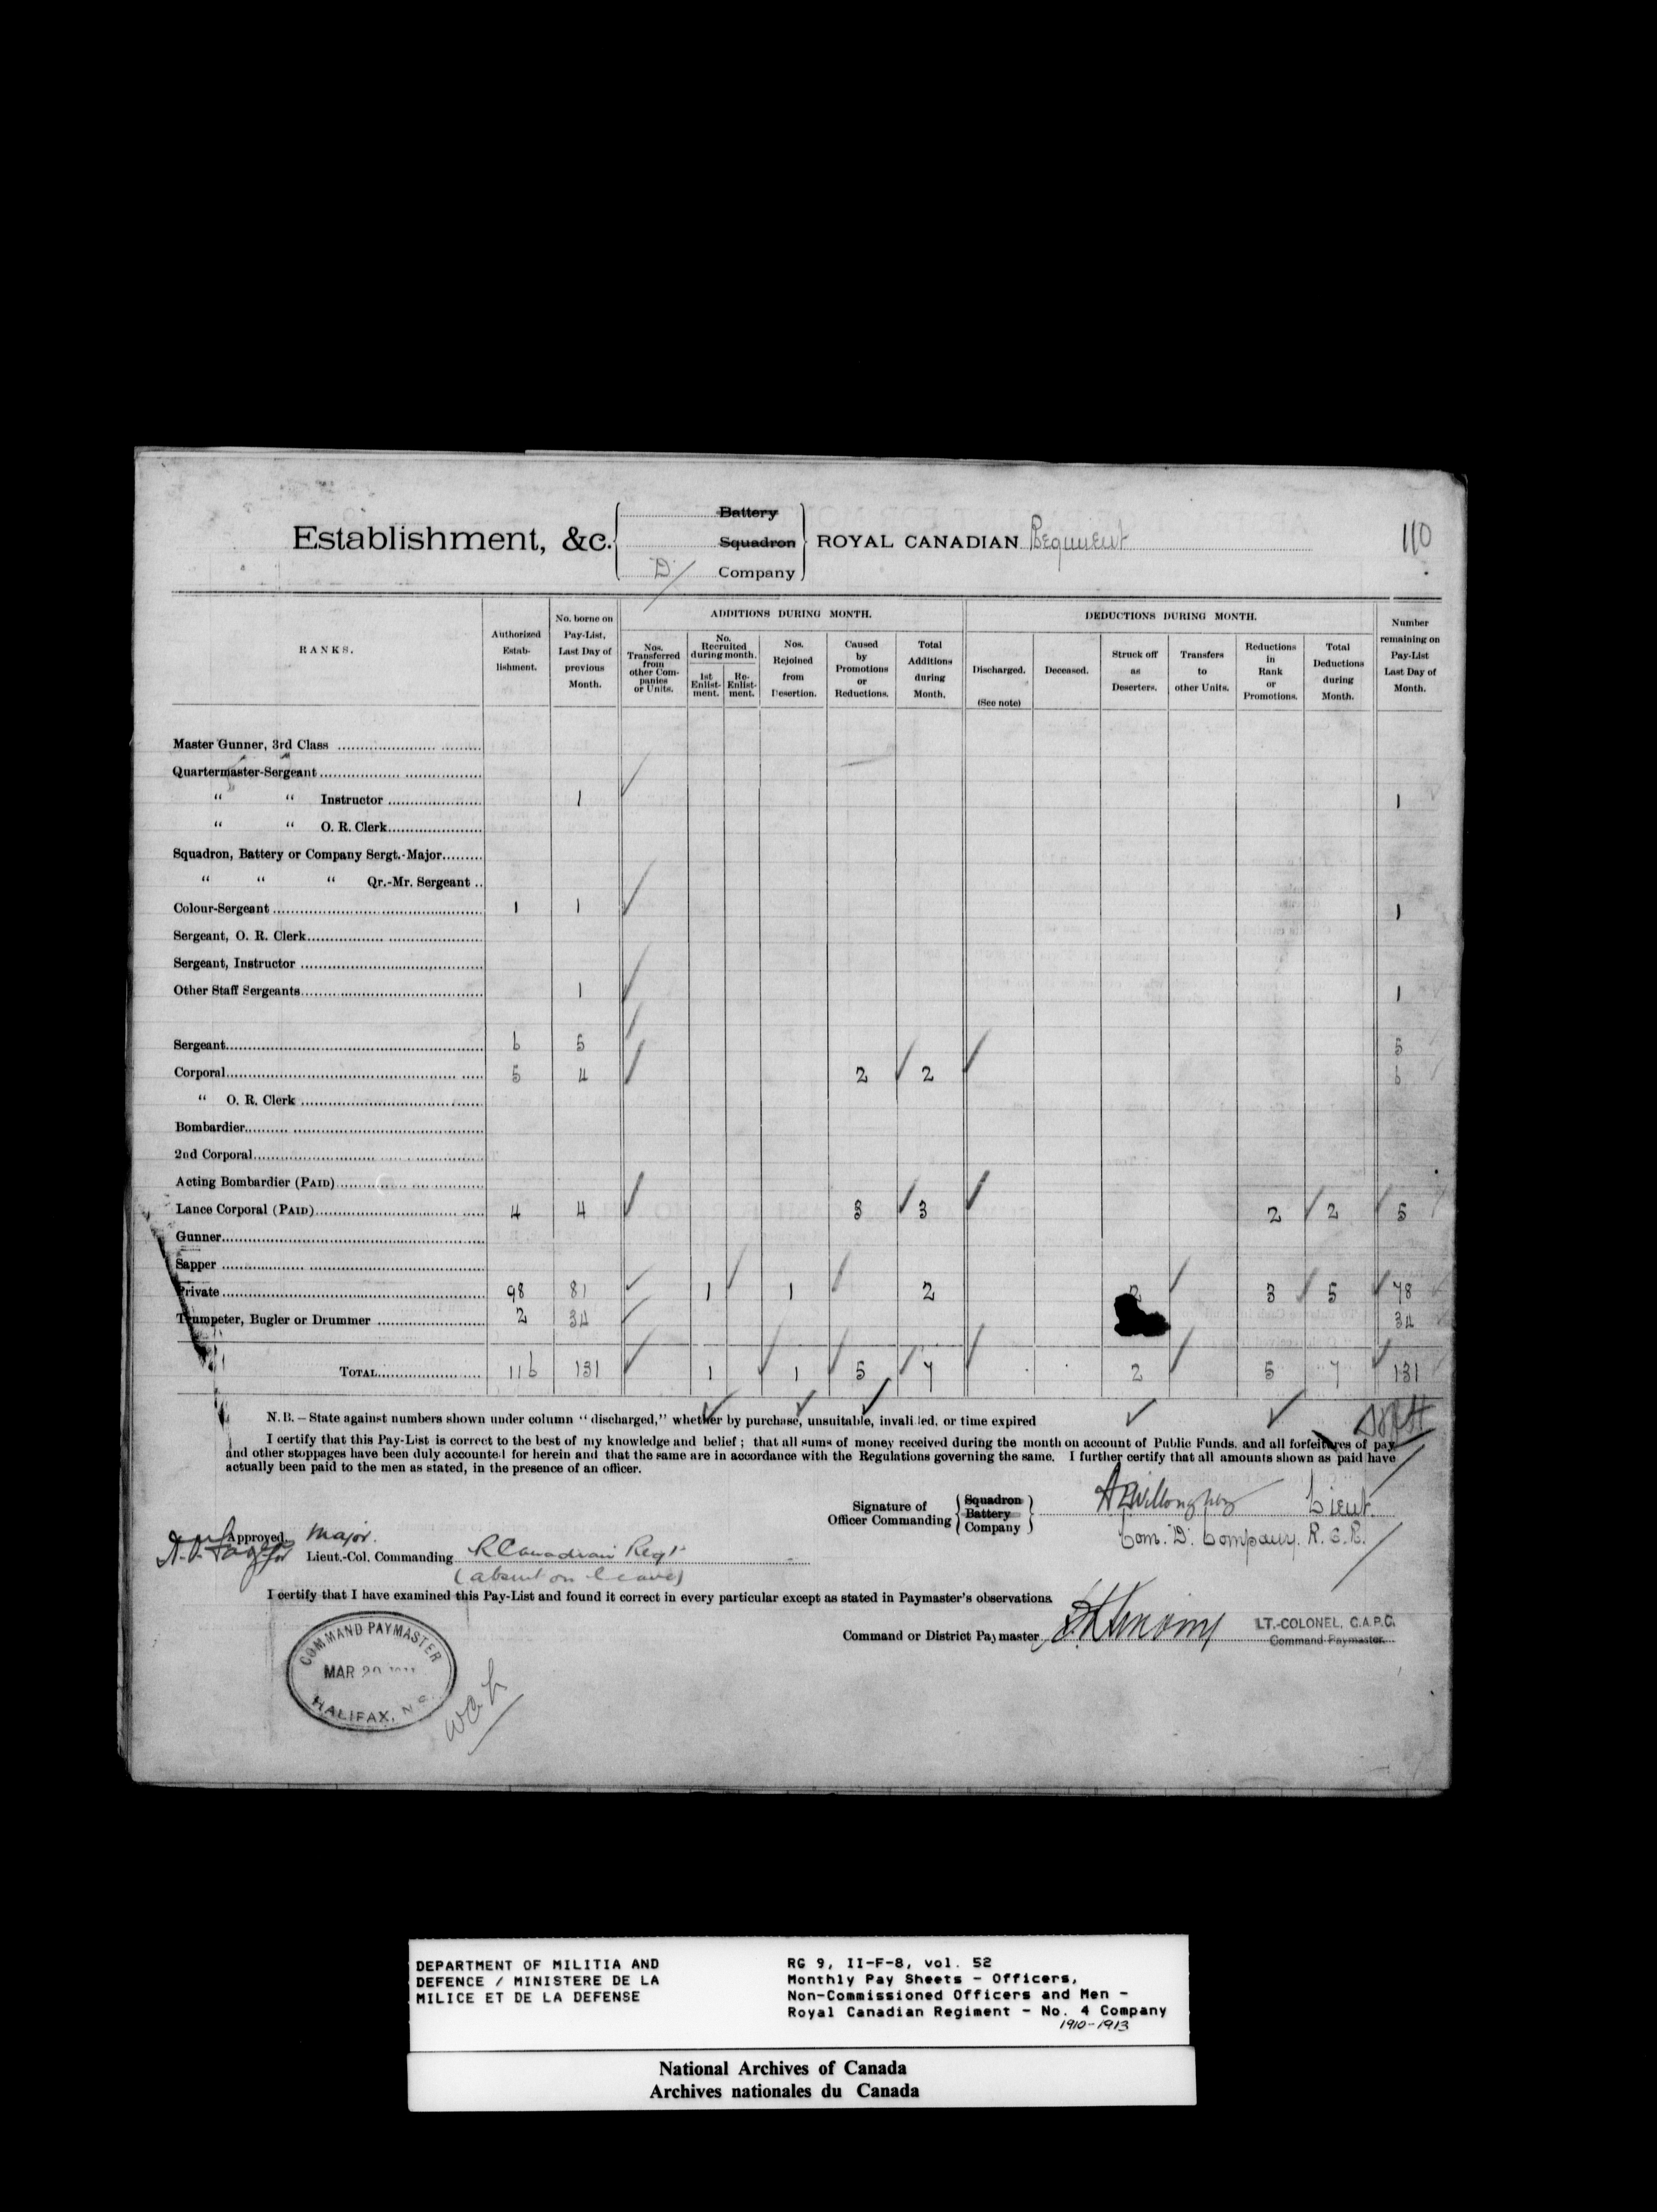 110
Battery
Establishment, &c. Squadron ROYAL CANADIAN Regiment
D Company
RANKS.
Authorized Estab- lishment.
No. borne on Pay-List, Last Day of previous Month.
ADDITIONS DURING MONTH.
Nos. Transferred from other Com- panies or Units.
No. Recruited during month.
1st Enlist- ment.
Re- Enlist- ment.
Nos. Rejoined from Desertion.
Caused by Promotions or Reductions.
Total Additions during Month.
DEDUCTIONS DURING MONTH.
Discharged. (See note)
Deceased.
Struck off as Deserters.
Transfers to other Units.
Reductions in Rank or Promotions.
Total Deductions during Month.
Number remaining on Pay-List Last Day of Month.
Master Gunner, 3rd Class
Quartermaster-Sergeant
" " Instructor 1 1
" " O. R. Clerk
Squadron, Battery or Company Sergt.-Major
" " " Qr.-Mr. Sergeant
Colour-Sergeant 1 1 1
Sergeant, O. R. Clerk
Sergeant, Instructor
Other Staff Sergeants 1 1
Sergeant 6 5 5
Corporal 5 4 2 2 6
" O. R. Clerk
Bombardier
2nd Corporal
Acting Bombardier (PAID)
Lance Corporal (PAID) 4 4 3 3 2 2 5
Gunner
Sapper
Private 98 81 1 1 2 2 3 5 78
Trumpeter, Bugler or Drummer 2 34 34
TOTAL 116 131 1 1 5 7 2 5 7 131
N.B.—State against numbers shown under column "discharged," whether by purchase, unsuitable, invalided, or time expired
I certify that this Pay-List is correct to the best of my knowledge and belief; that all sums of money received during the month on account of Public Funds, and all forfeitures of pay
and other stoppages have been duly accounted for herein and that the same are in accordance with the Regulations governing the same. I further certify that all amounts shown as paid have
actually been paid to the men as stated, in the presence of an officer.
Signature of Officer Commanding Squadron Battery Company
Willoughby Lieut.
Com. "D" Company. R. C. R.
Approved, Major.
Lieut.-Col. Commanding R Canadian Regt
(absent on leave)
I certify that I have examined this Pay-List and found it correct in every particular except as stated in Paymaster's observations
Command or District Paymaster
LT.-COLONEL, C.A.P.C.
Command Paymaster.
COMMAND PAYMASTER
MAR 20
HALIFAX, N.S.
DEPARTMENT OF MILITIA AND
DEFENCE / MINISTERE DE LA
MILICE ET DE LA DEFENSE
RG 9, II-F-8, vol. 52
Monthly Pay Sheets - Officers,
Non-Commissioned Officers and Men -
Royal Canadian Regiment - No. 4 Company
1910-1913
National Archives of Canada
Archives nationales du Canada